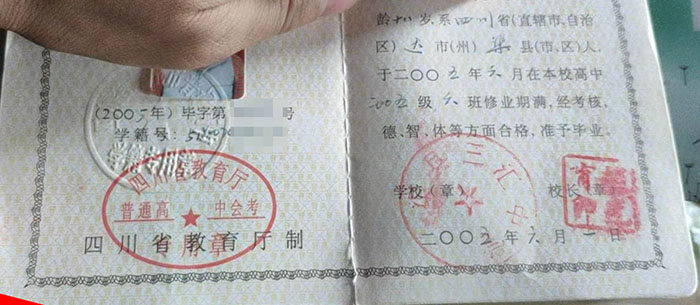 (2005年) 毕字第 号
学籍号:
四川省教育厅
普通高 中会考
专用章
四川省教育厅制
龄十八岁,系四川省(直辖市、自治
区) 达 市(州) 渠 县(市、区)人,
于二〇〇五年六月在本校高中
2005级 六 班修业期满,经考核,
德、智、体等方面合格,准予毕业。
学校(章) 校长(章)
二〇〇五年六月一日